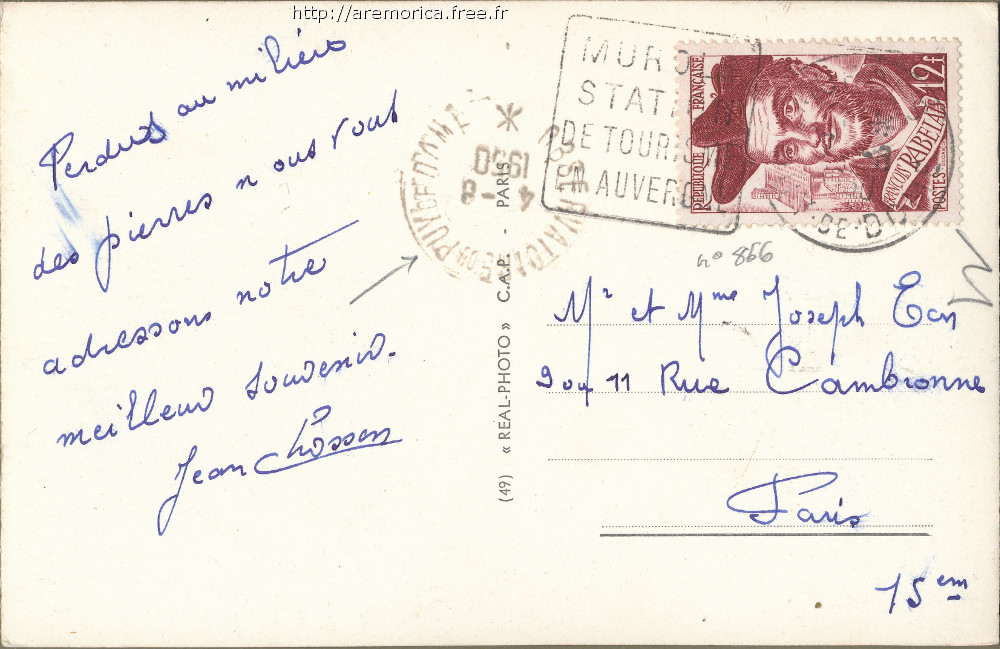 http://aremorica.free.fr
Perdus au milieu
des pierres nous vous
adressons notre
meilleur souvenir.
Jean
PUY DE DOME
*
4 - 8
1950
(49) « REAL-PHOTO » C.A.P. - PARIS
MUROL
STATION
DE TOURISME
EN AUVERGNE
RÉPUBLIQUE FRANÇAISE
12f
FRANÇOIS RABELAIS
POSTES
DE-D
n° 866
Mr et Mme Joseph
9 ou 11 Rue Cambronne
Paris
15em